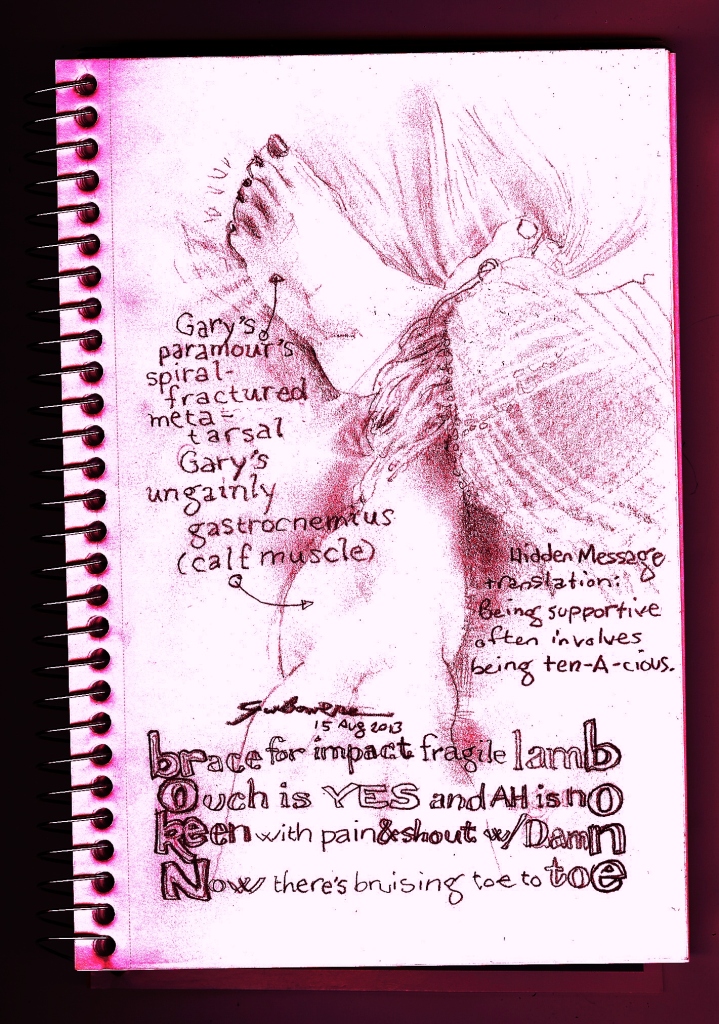 Gary's
paramour's
spiral-
fractured
meta=
tarsal
Gary's
ungainly
gastrocnemius
(calf muscle)
Hidden Message
translation:
Being supportive
often involves
being ten-A-cious.
15 Aug 2013
brace for impact fragile lamb
Ouch is YES and AH is no
Keen with pain & shout w/ Damn
Now there's bruising toe to toe